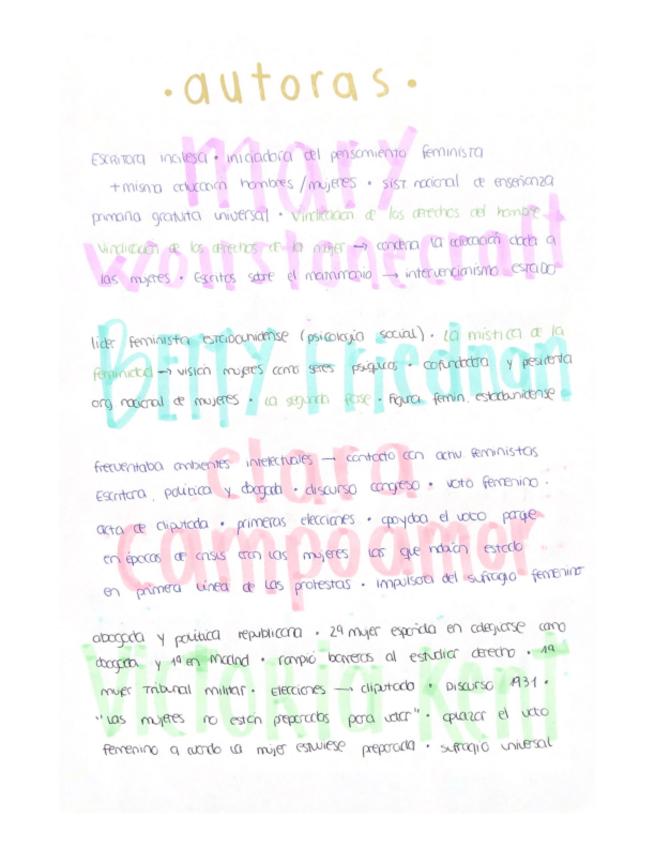 • autoras •
mary
wollstonecraft
Escritora inglesa • iniciadora del pensamiento feminista
+ misma educación hombres / mujeres • sist nacional de enseñanza
primaria gratuita universal • Vindicación de los derechos del hombre
Vindicación de los derechos de la mujer → condena la educación dada a
las mujeres • Escritos sobre el matrimonio → intervencionismo ESTADO
BETTY Friednan
líder feminista estadounidense (psicología social) • La mística de la
feminidad → visión mujeres como seres psíquicos • cofundadora y presidenta
org nacional de mujeres • La segunda fase • figura femin. estadounidense
clara
campoamor
frecuentaba ambientes intelectuales → contacto con activ. feministas
Escritora, política y abogada • discurso congreso • voto femenino •
acta de diputada • primeras elecciones • apoyaba el voto porque
en épocas de crisis eran las mujeres las que estado
en primera línea de las protestas • impulsora del sufragio femenino
Victoria Kent
abogada y política republicana • 2ª mujer española en colegiarse como
abogada y 1ª en Madrid • rompió barreras al estudiar derecho • 1ª
mujer Tribunal militar • Elecciones → diputada • Discurso 1931 •
"Las mujeres no están preparadas para votar" • aplazar el voto
femenino a cuando la mujer estuviese preparada • sufragio universal